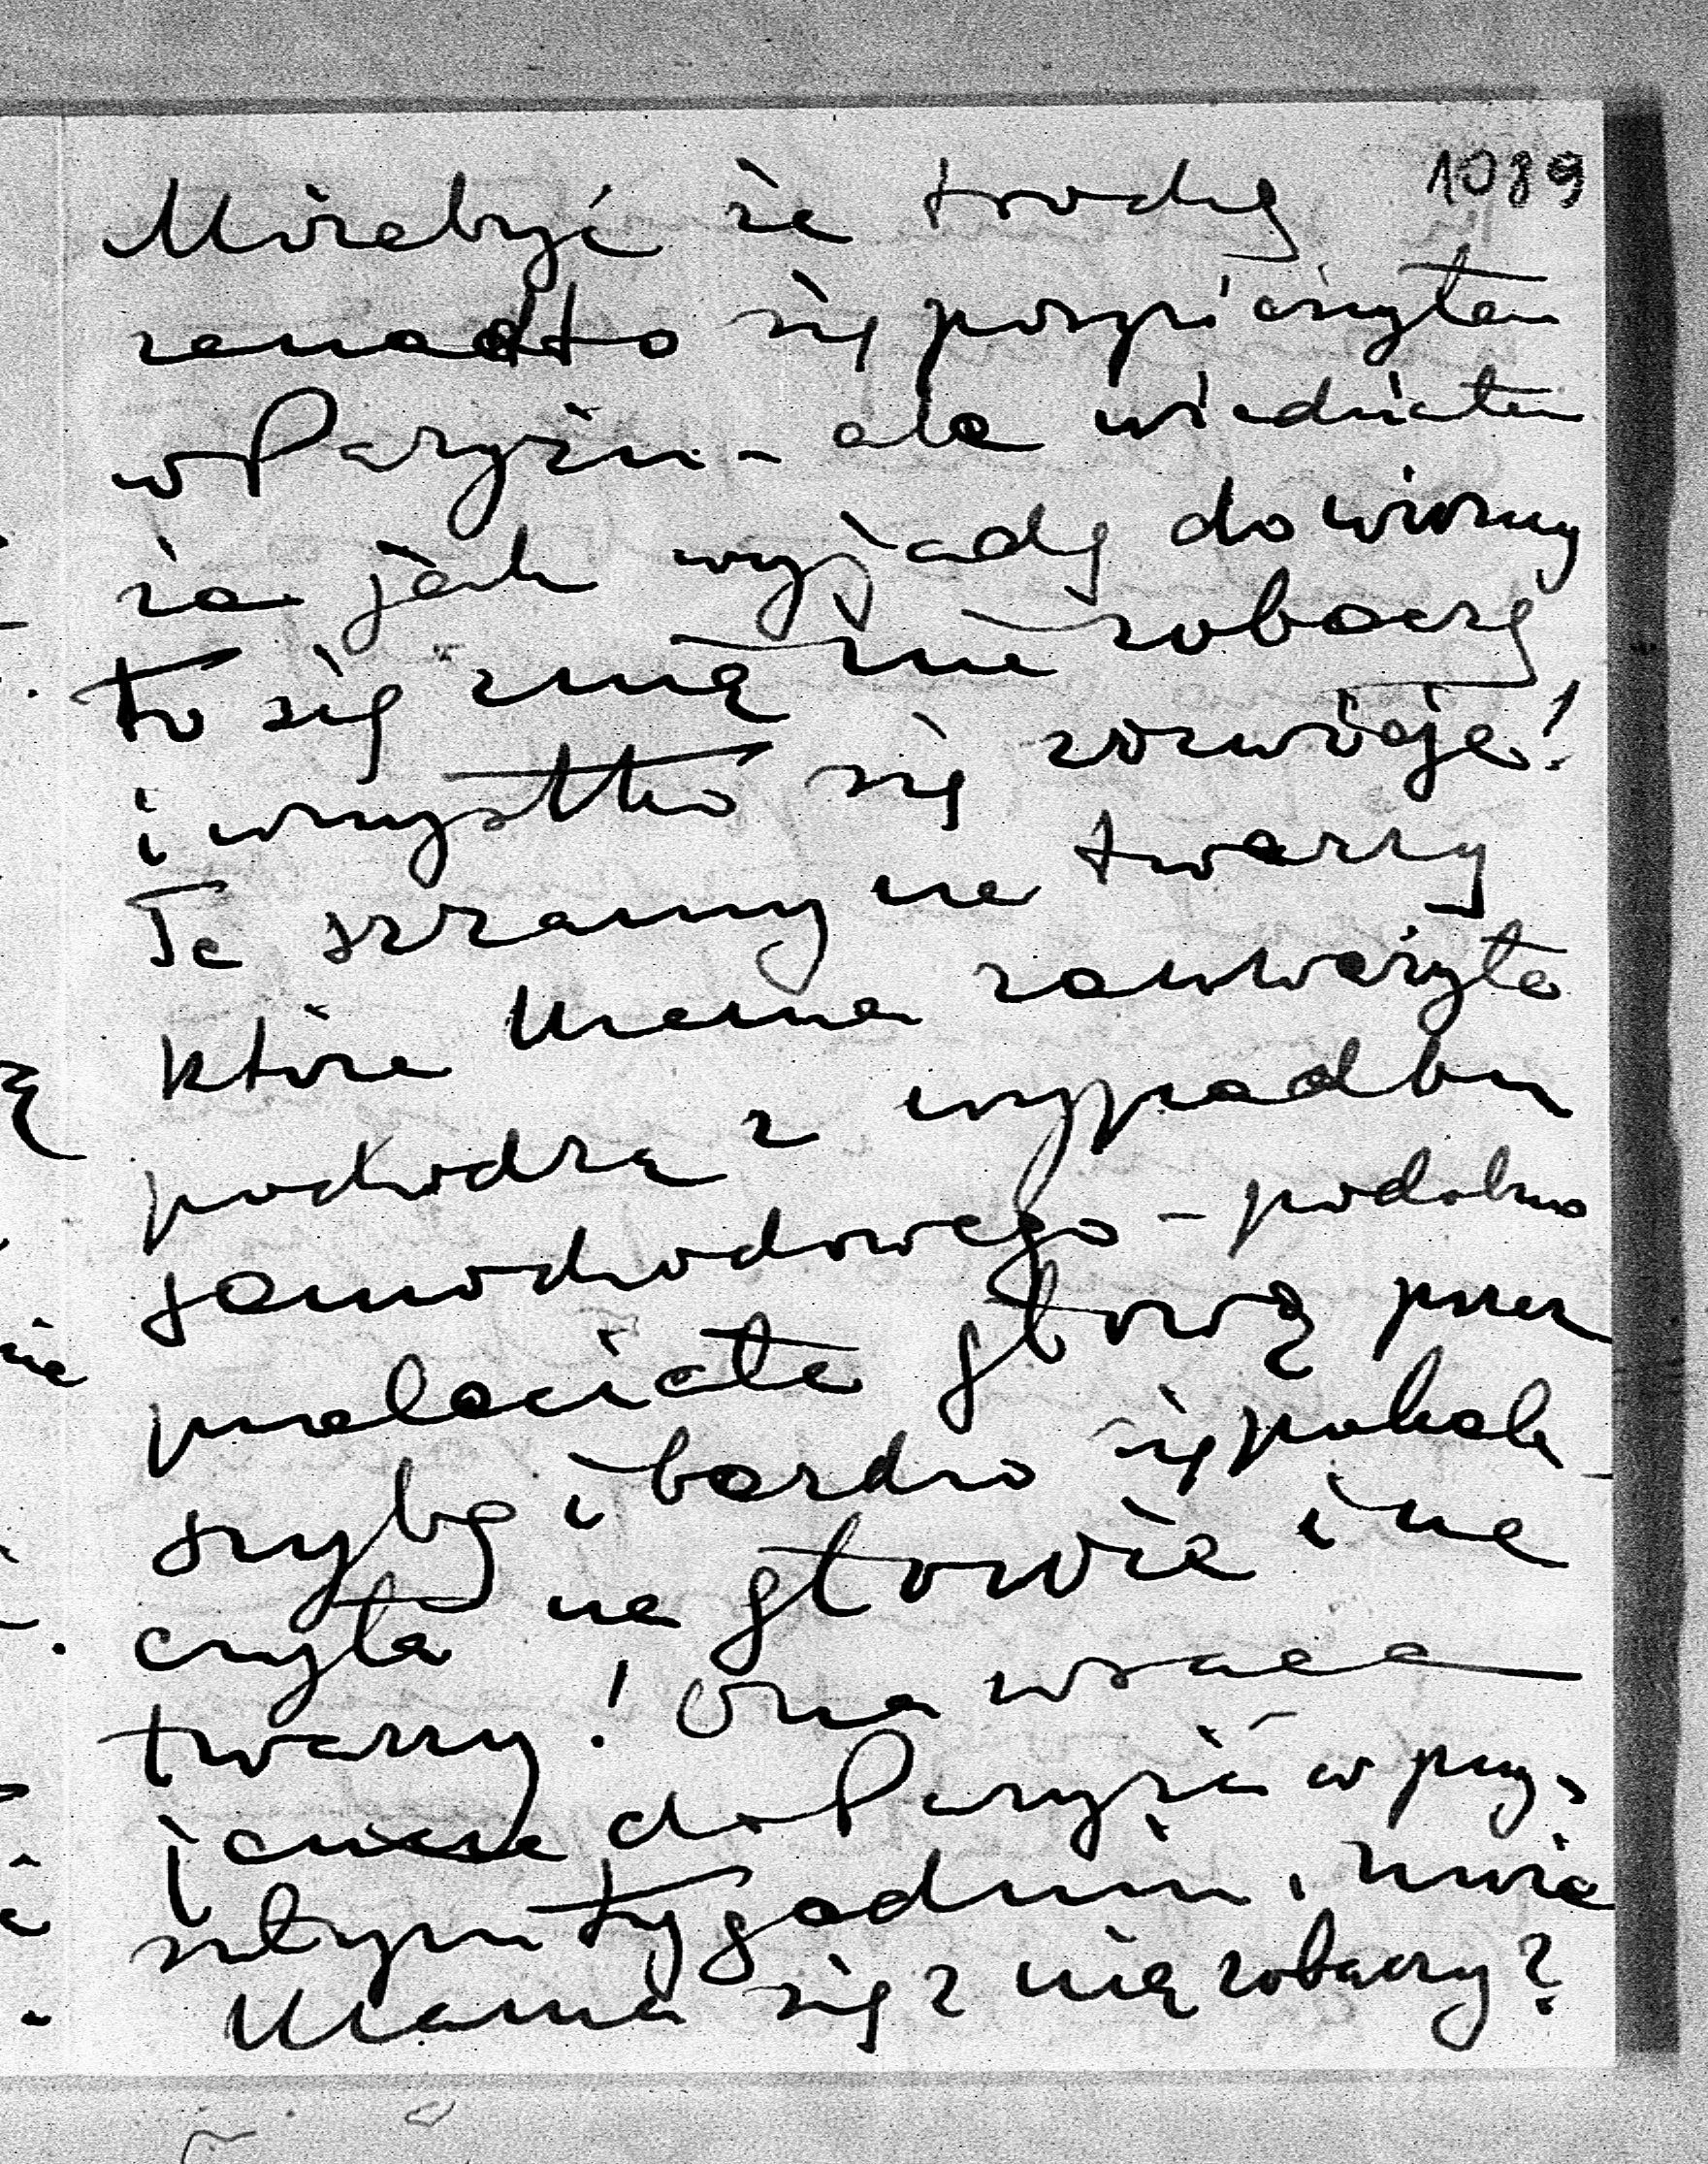 1089
Możebyć że trochę
zanadto się pospieszyłem
w Paryżu - ale wiedziałem
że jak wyjadę do wiosny
to się z nią nie zobaczę
i wszystko się rozwieje!
Te szramy na twarzy
które Mama zauważyła
pochodzą z wypadku
samochodowego - podobno
przeleciała głową przez
szybę i bardzo się pokale-
czyła na głowie i na
twarzy! Ona wraca
do Paryża w przy-
szłym tygodniu, może
Mama się z nią zobaczy?